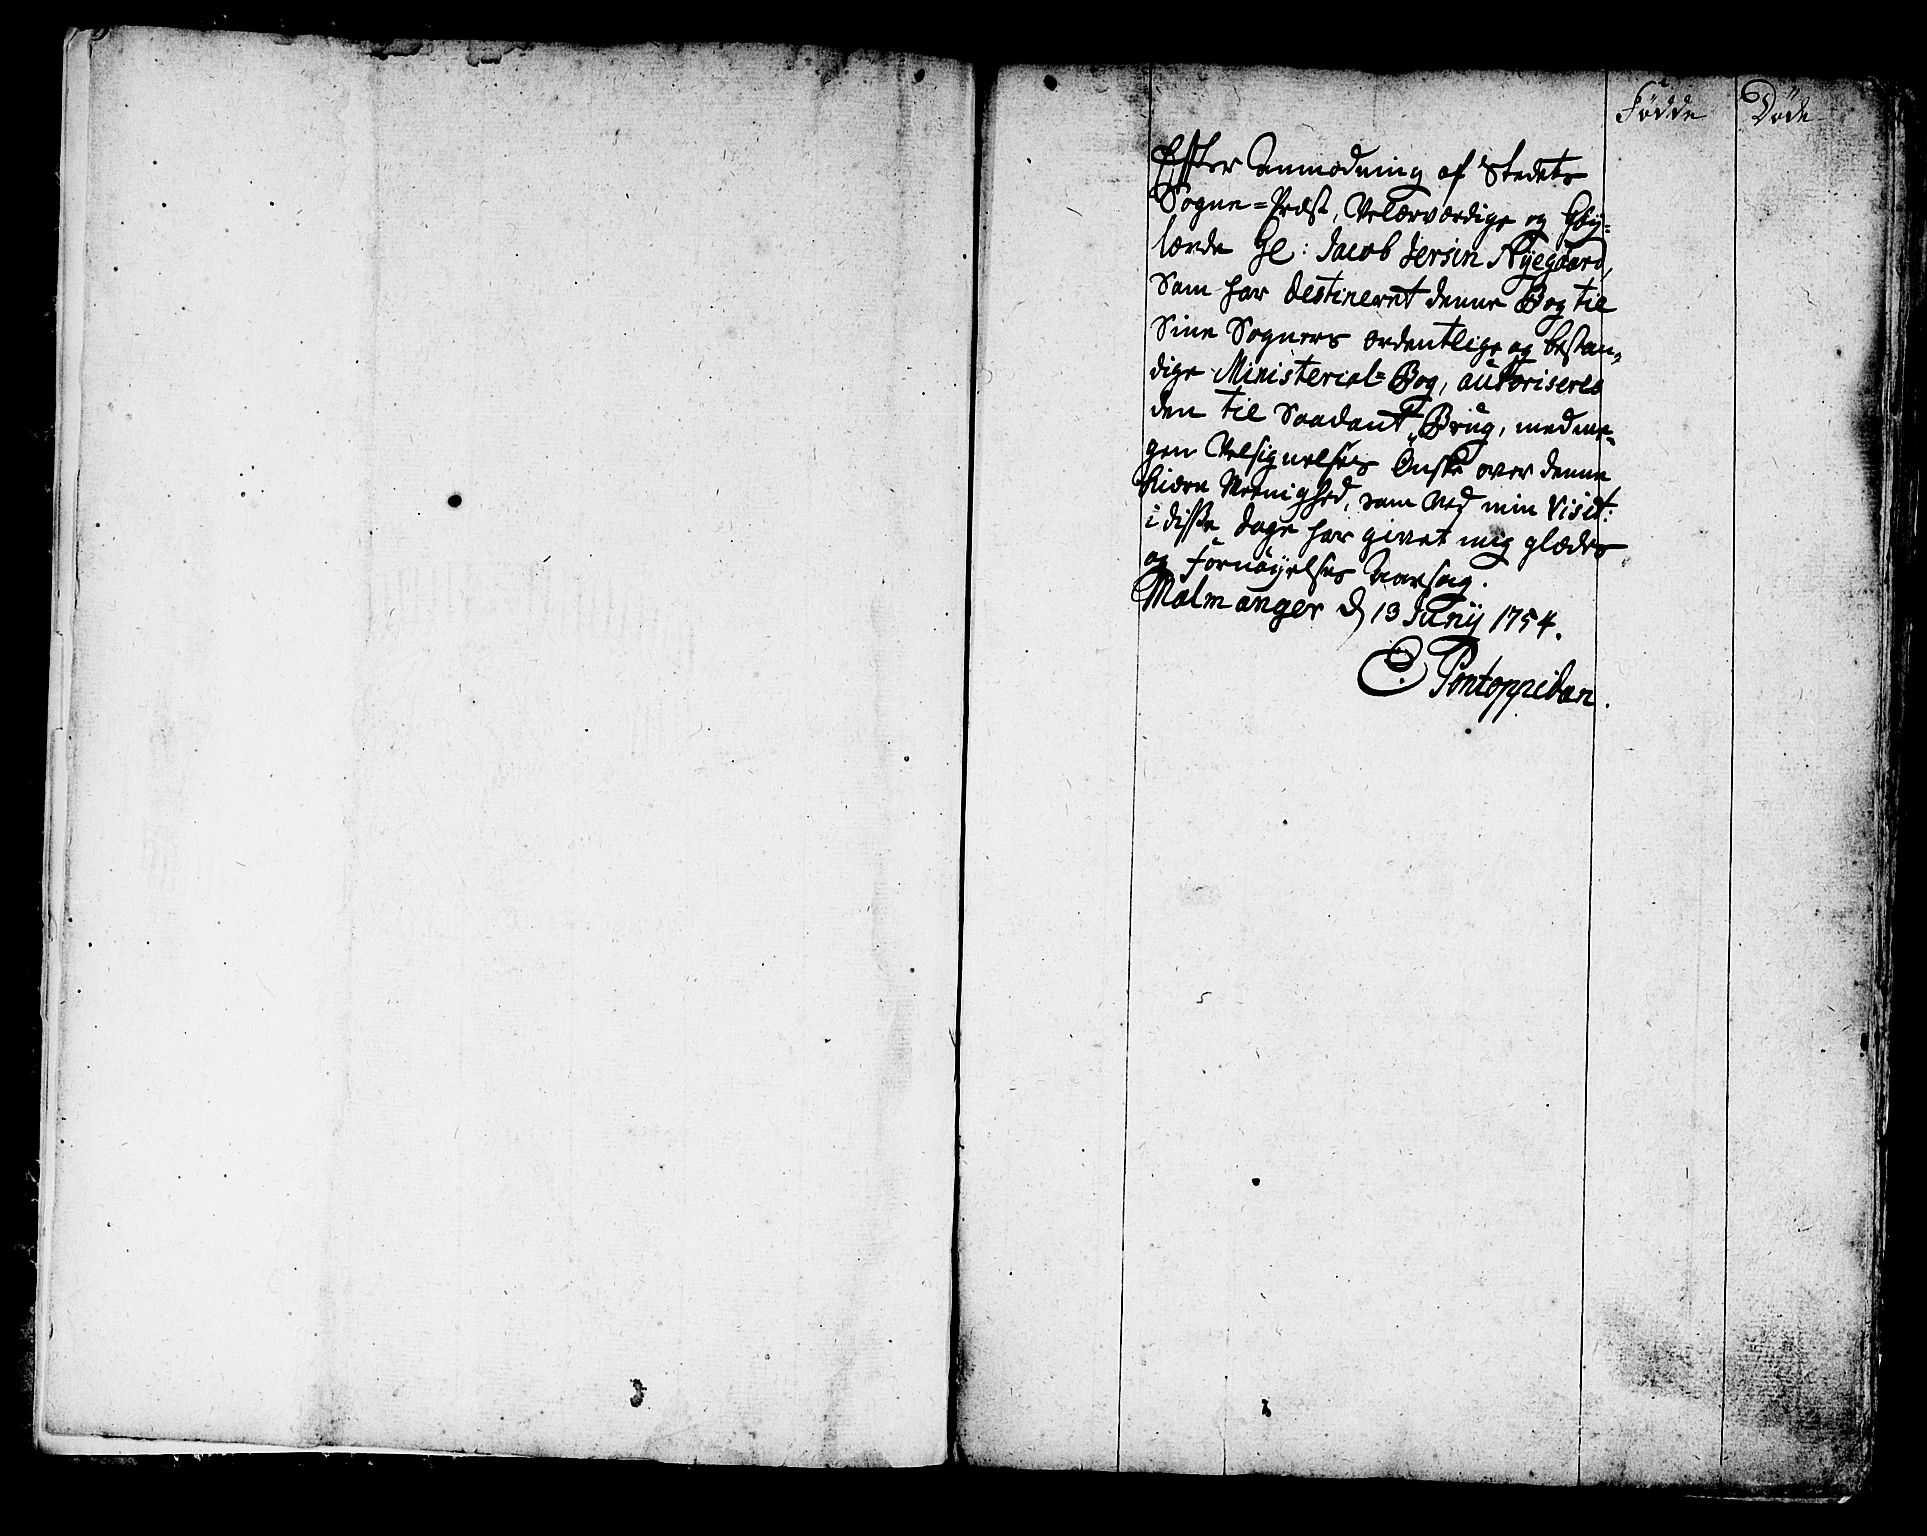 Fødde Døde
Efter Anmodning af Stedets
Sogne=Præst, Velærværdige og Høy=
lærde Hr: Jacob Jersin Nyegaard,
Som har destineret denne Bog til
Sine Sogners ordentlige og bestan=
dige Ministerial=Bog, autoriseres
den til Saadant Brug, med me=
gen Velsignelses Ønske over denne
kiære Meenighed, som ved min Visit:
i disse dage har givet mig glædes
og Fornøyelses Aarsag.
Malmanger d 13 Junij 1754.
E Pontoppidan.